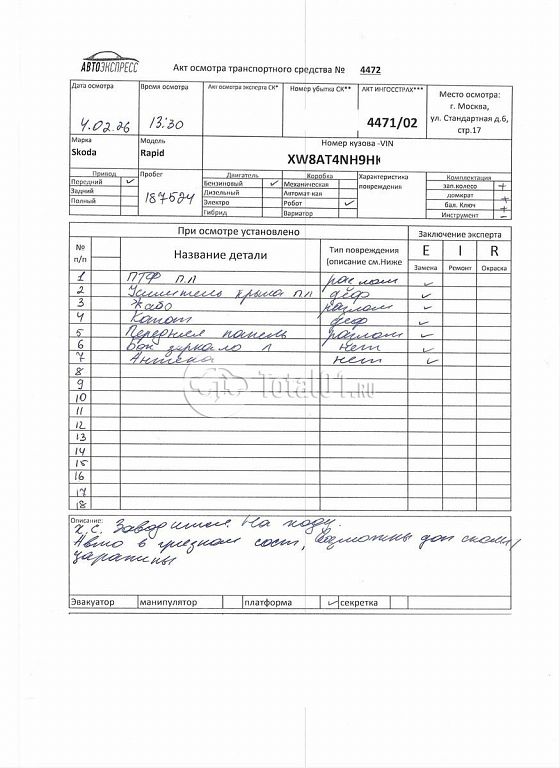 АВТОЭКСПРЕСС
Акт осмотра транспортного средства № 4472
Дата осмотра Время осмотра Акт осмотра эксперта СК* Номер убытка СК** АКТ ИНГОССТРАХ*** Место осмотра:
г. Москва,
4.02.26 13:30 4471/02 ул. Стандартная д.6,
стр.17
Марка Модель Номер кузова -VIN
Skoda Rapid XW8AT4NH9HK
Привод Пробег Двигатель Коробка Характеристика Комплектация
Передний ✓ 187524 Бензиновый ✓ Механическая повреждения зап.колесо +
Задний Дизельный Автомат-кая домкрат +
Полный Электро Робот ✓ бал. Ключ +
Гибрид Вариатор Инструмент –
При осмотре установлено Заключение эксперта
№ Название детали Тип повреждения E I R
п/п (описание см.Ниже Замена Ремонт Окраска
1 ПТФ п.п разлом ✓
2 Усилитель крыла п.п деф ✓
3 Жабо разлом ✓
4 Капот деф ✓
5 Передняя панель разлом ✓
6 Бок зеркало л нет ✓
7 Антена нет ✓
8
9
Total01.RU
10
11
12
13
14
15
16
17
18
Описание:
Т.С. Заводится. На ходу.
Авто в грязном сост, возможны доп сколы/
царапины
Эвакуатор манипулятор платформа ✓ секретка